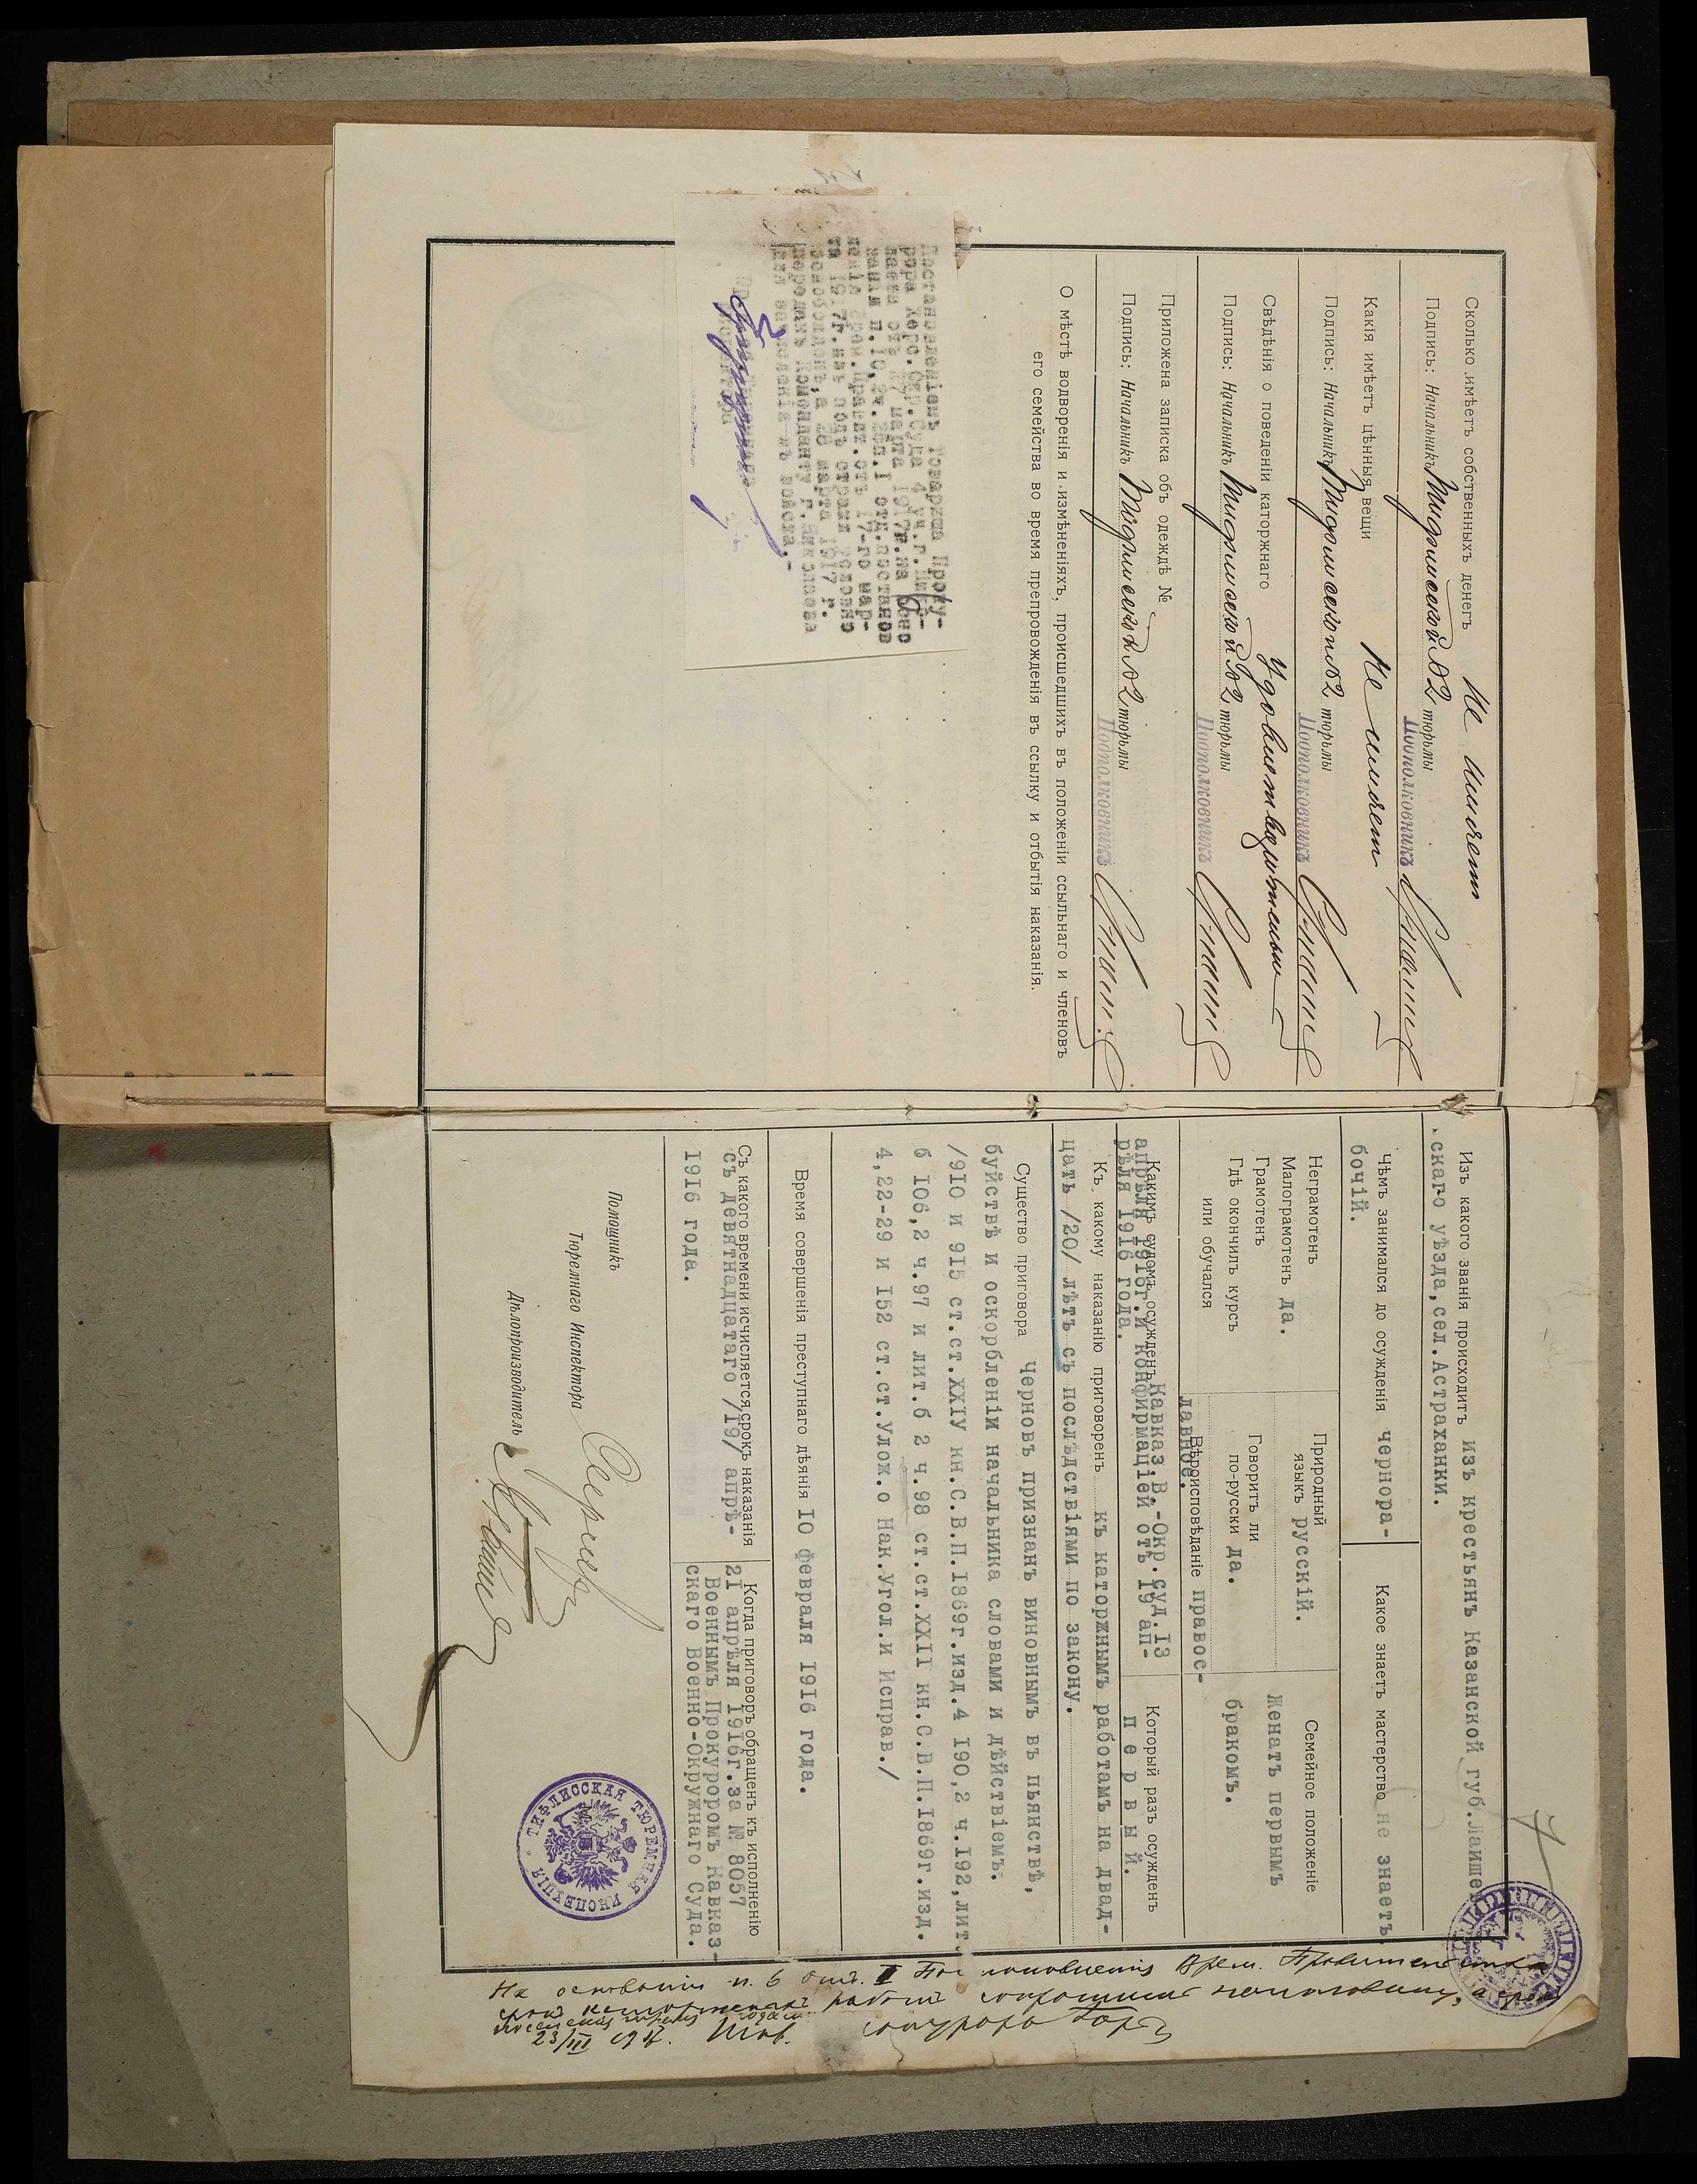 Сколько имѣетъ собственныхъ денегъ Не имѣетъ
Подпись: Начальникъ Тифлисской №2 тюрьмы
Подполковникъ
Какія имѣетъ цѣнныя вещи Не имѣетъ
Подпись: Начальникъ Тифлисской №2 тюрьмы
Подполковникъ
Свѣдѣнія о поведеніи каторжнаго Удовлетворительно
Подпись: Начальникъ Тифлисской №2 тюрьмы
Подполковникъ
Приложена записка объ одеждѣ №
Подпись: Начальникъ Тифлисской №2 тюрьмы
Подполковникъ
О мѣстѣ водворенія и измѣненіяхъ, происшедшихъ въ положеніи ссыльнаго и членовъ
его семейства во время препровожденія въ ссылку и отбытія наказанія.
Постановленіемъ Товарища Проку-
рора Херс.Окр.Суда 4 уч.г.Ник-
лаева отъ 27 марта 1917г.на осно
ваніи п.10,ст.2,п.1 отд.постанов
ленія Врем.Правит.отъ 17-го мар-
та 1917г.изъ подъ стражи условно
освобожденъ,а 28 марта 1917 г.
переданъ Коменданту г.Николаева
для зачисленія въ войска.-
Изъ какого званія происходитъ изъ крестьянъ Казанской губ.Лаишев
скаго уѣзда,сел.Астраханки.
Чѣмъ занимался до осужденія чернора-
бочій.
Какое знаетъ мастерство не знаетъ
Неграмотенъ
Малограмотенъ да.
Грамотенъ
Гдѣ окончилъ курсъ
или обучался
Природный
языкъ русскій.
Говоритъ ли
по-русски да.
Вѣроисповѣданіе правос-
лавное.
Семейное положеніе
женатъ первымъ
бракомъ.
Какимъ судомъ осужденъ Кавказ.В.-Окр.Суд.13
апрѣля 1916г.и конфирмаціей отъ 19 ап-
рѣля 1916 года.
Который разъ осужденъ
первый.
Къ какому наказанію приговоренъ къ каторжнымъ работамъ на двад-
цать /20/ лѣтъ съ послѣдствіями по закону.
Существо приговора Черновъ признанъ виновнымъ въ пьянствѣ,
буйствѣ и оскорбленіи начальника словами и дѣйствіемъ.
/910 и 915 ст.ст.XXIV кн.С.В.П.1869г.изд.4 190,2 ч.192,лит.
б 106,2 ч.97 и лит.б 2 ч.98 ст.ст.XXII кн.С.В.П.1869г.изд.
4,22-29 и 152 ст.ст.Улож.о Нак.Угол.и Исправ./
Время совершенія преступнаго дѣянія 10 февраля 1916 года.
Съ какого времени исчисляется срокъ наказанія
съ девятнадцатаго /19/ апрѣ-
1916 года.
Когда приговоръ обращенъ къ исполненію
21 апрѣля 1916г.за № 8057
Военнымъ Прокуроромъ Кавказ-
скаго Военно-Окружнаго Суда.
Помощникъ
Тюремнаго Инспектора
Дѣлопроизводитель
ТИФЛИССКАЯ ТЮРЕМНАЯ ИНСПЕКЦІЯ
На основаніи п. 6 отд. I Постановленія Врем. Правительства
срокъ каторжныхъ работъ сокращенъ на половину,
23/III 1917. Тов. прокурора